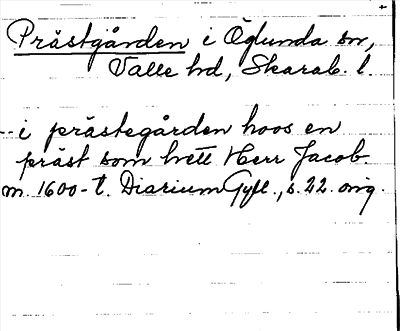 Prästgården i Öglunda sn,
Valle hd, Skarab. l.
-- i prästegården hoos en
präst som hett Herr Jacob
m. 1600-t. Diarium Gyll., s. 22. orig.